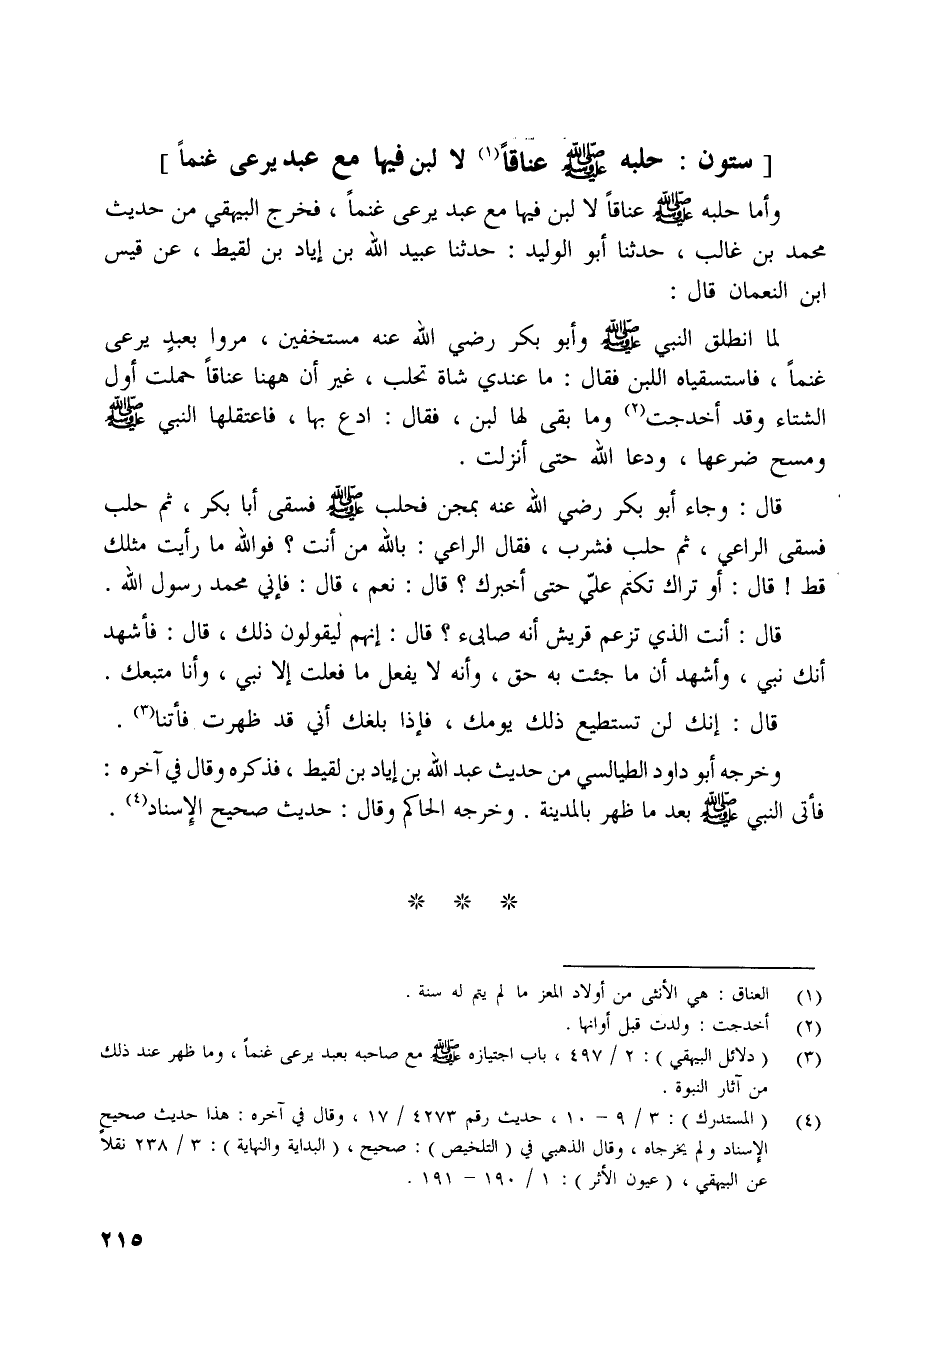 [ ستون : حلبه ﷺ عناقاً(١) لا لبن فيها مع عبد يرعى غنماً ]
وأما حلبه ﷺ عناقاً لا لبن فيها مع عبد يرعى غنماً ، فخرج البيهقي من حديث
محمد بن غالب ، حدثنا أبو الوليد : حدثنا عبيد الله بن إياد بن لقيط ، عن قيس
ابن النعمان قال :
لما انطلق النبي ﷺ وأبو بكر رضي الله عنه مستخفين ، مروا بعبدٍ يرعى
غنماً ، فاستسقياه اللبن فقال : ما عندي شاة تحلب ، غير أن ههنا عناقاً حملت أول
الشتاء وقد أخدجت(٢) وما بقى لها لبن ، فقال : ادع بها ، فاعتقلها النبي ﷺ
ومسح ضرعها ، ودعا الله حتى أنزلت .
قال : وجاء أبو بكر رضي الله عنه بمجن فحلب ﷺ فسقى أبا بكر ، ثم حلب
فسقى الراعي ، ثم حلب فشرب ، فقال الراعي : بالله من أنت ؟ فوالله ما رأيت مثلك
قط ! قال : أو تراك تكتم عليّ حتى أخبرك ؟ قال : نعم ، قال : فإني محمد رسول الله .
قال : أنت الذي تزعم قريش أنه صابىء ؟ قال : إنهم ليقولون ذلك ، قال : فأشهد
أنك نبي ، وأشهد أن ما جئت به حق ، وأنه لا يفعل ما فعلت إلا نبي ، وأنا متبعك .
قال : إنك لن تستطيع ذلك يومك ، فإذا بلغك أني قد ظهرت فأتنا(٣) .
وخرجه أبو داود الطيالسي من حديث عبد الله بن إياد بن لقيط ، فذكره وقال في آخره :
فأتى النبي ﷺ بعد ما ظهر بالمدينة . وخرجه الحاكم وقال : حديث صحيح الإسناد(٤) .
* * *
(١) العناق : هي الأنثى من أولاد المعز ما لم يتم له سنة .
(٢) أخدجت : ولدت قبل أوانها .
(٣) ( دلائل البيهقي ) : ٢ / ٤٩٧ ، باب اجتيازه ﷺ مع صاحبه بعبد يرعى غنماً ، وما ظهر عند ذلك
من آثار النبوة .
(٤) ( المستدرك ) : ٣ / ٩ – ١٠ ، حديث رقم ٤٢٧٣ / ١٧ ، وقال في آخره : هذا حديث صحيح
الإسناد ولم يخرجاه ، وقال الذهبي في ( التلخيص ) : صحيح ، ( البداية والنهاية ) : ٣ / ٢٣٨ نقلاً
عن البيهقي ، ( عيون الأثر ) : ١ / ١٩٠ – ١٩١ .
٢١٥